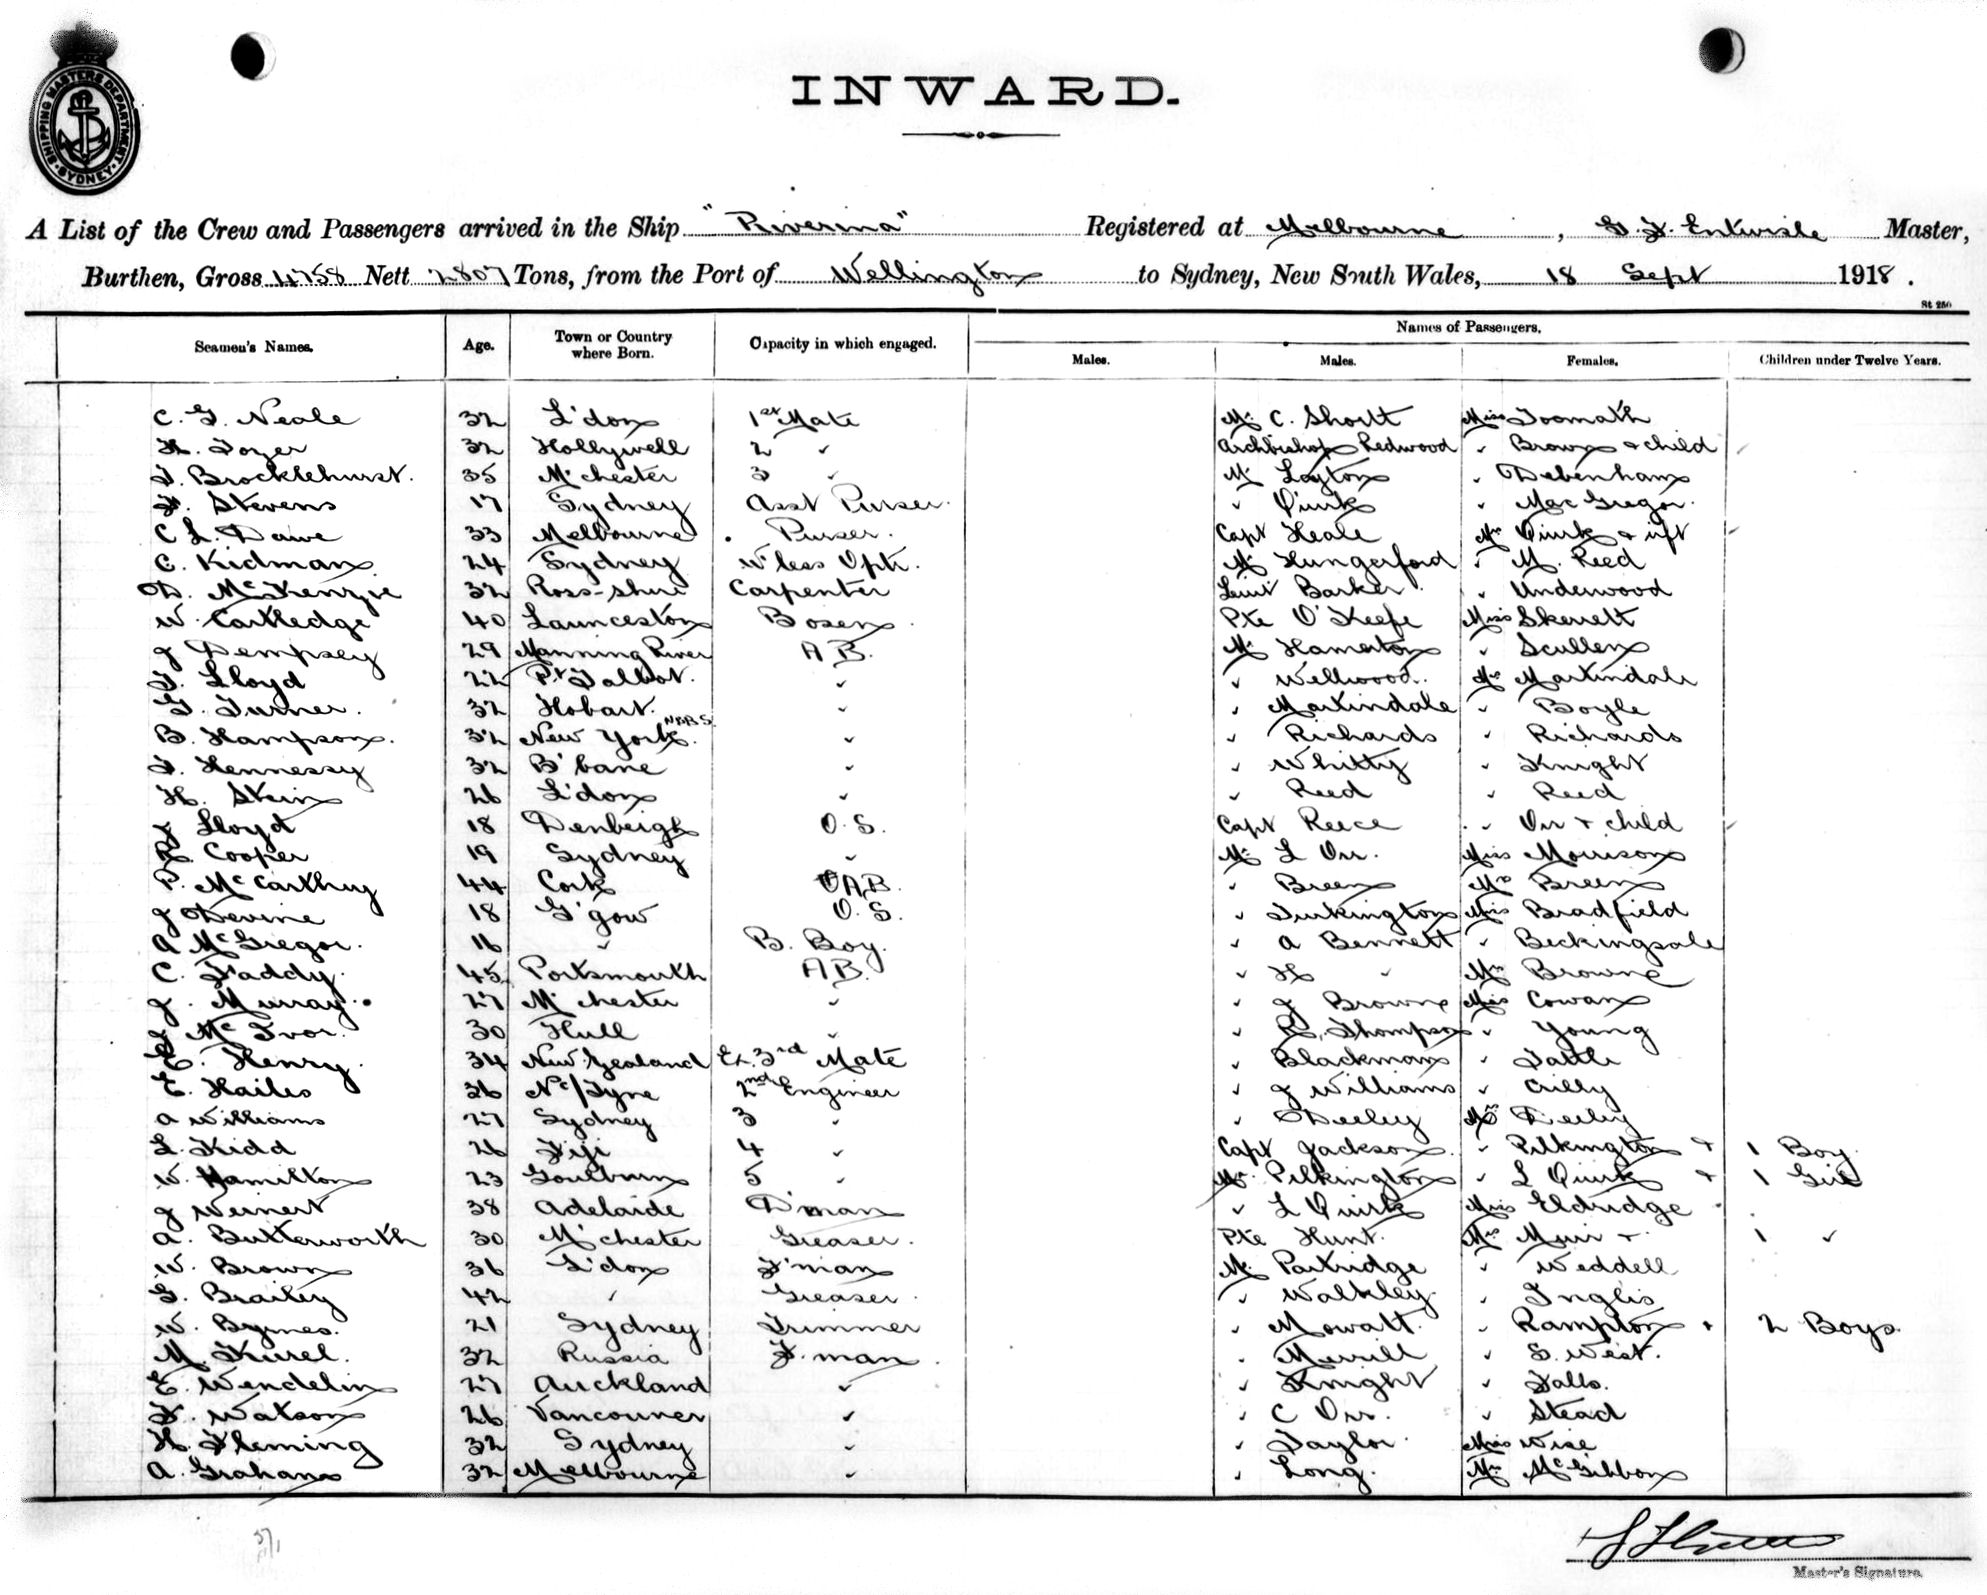 SHIPPING MASTERS DEPARTMENT SYDNEY
INWARD.
A List of the Crew and Passengers arrived in the Ship "Riverina" Registered at Melbourne, G. F. Entwisle Master,
Burthen, Gross 4758 Nett 2807 Tons, from the Port of Wellington to Sydney, New South Wales, 18 Sept 1918.
St 250
Names of Passengers.
Seamen's Names. Age. Town or Country where Born. Capacity in which engaged. Males. Males. Females. Children under Twelve Years.
C. G. Neale 32 L'don 1st Mate Mr C. Shortt Miss Toomath
H. Tozer 32 Hollywell 2 " Archbishop Redwood " Brown & child
J. Brocklehurst. 35 M'chester 3 " Mr Layton " Debenham
F. Stevens 17 Sydney Asst Purser. " Quirk " MacGregor.
C L. Dawe 33 Melbourne Purser. Capt Heale Mrs Quirk & ift
C. Kidman 24 Sydney W'less Optr. Mr Hungerford " M. Reed
D. McKenzie 32 Ross-shire Carpenter Lieut Barker " Underwood
W. Cartledge 40 Launceston Bosen Pte O'Keefe Miss Skerrett
J Dempsey 29 Manning River A B. Mr Hamerton " Scullen
J. Lloyd 22 Pt Talbot. " " Wellwood. Mrs Martindale
G. Turner. 32 Hobart. " " Martindale " Boyle
B. Hampson. 32 New York. " " Richards " Richards
J. Hennessy 32 B'bane " " Whitty " Knight
H. Skin 26 L'don " " Reed " Reed
J Lloyd 18 Denbeigh O. S. Capt Reece " Orr & child
R. Cooper 19 Sydney " Mr L Orr. Miss Morrison
P. McCarthy 44 Cork A B. " Breen Mrs Breen
J Devine 18 G'gow O. S. " Turkington Miss Bradfield
A McGregor. 16 " B. Boy. " A Bennett " Beckingsale
C. Faddy. 45 Portsmouth A B. " H " Mrs Browne
J. Murray. 27 M'chester " " J Browne Miss Cowan
J McIvor. 30 Hull " " R. Thompson " Young
E. Henry. 34 New Zealand Ex. 3rd Mate " Blackman " Tattle
E. Hailes 36 Nc/Tyne 2nd Engineer " J Williams " Crilly
A Williams 27 Sydney 3 " " Deeley Mrs Deeley
L. Kidd 26 Fiji 4 " Capt Jackson. " Pilkington & 1 Boy
W. Hamilton 23 Goulburn 5 " Mr. Pilkington " L Quirk & 1 Girl
J Weinert 38 Adelaide D'man " L Quirk Miss Eldridge
A. Butterworth 30 M'chester Greaser. Pte Hunt. Mrs Muir & 1 "
W. Brown 36 L'don F'man Mr Partridge " Weddell
G. Brailey 42 " Greaser. " Walkley. " Inglis
W. Byrnes. 21 Sydney Trimmer " Mowatt. " Rampton & 2 Boys.
M. Kurel. 32 Russia F.man " Merrill " S. West.
E. Wendelin 27 Auckland " " Knight " Falls.
F. Watson 26 Vancouver " " C Orr. " Stead
H. Fleming 32 Sydney " " Taylor. Miss Wise
A. Graham 32 Melbourne " " Long. Mrs McGibbon
Master's Signature.